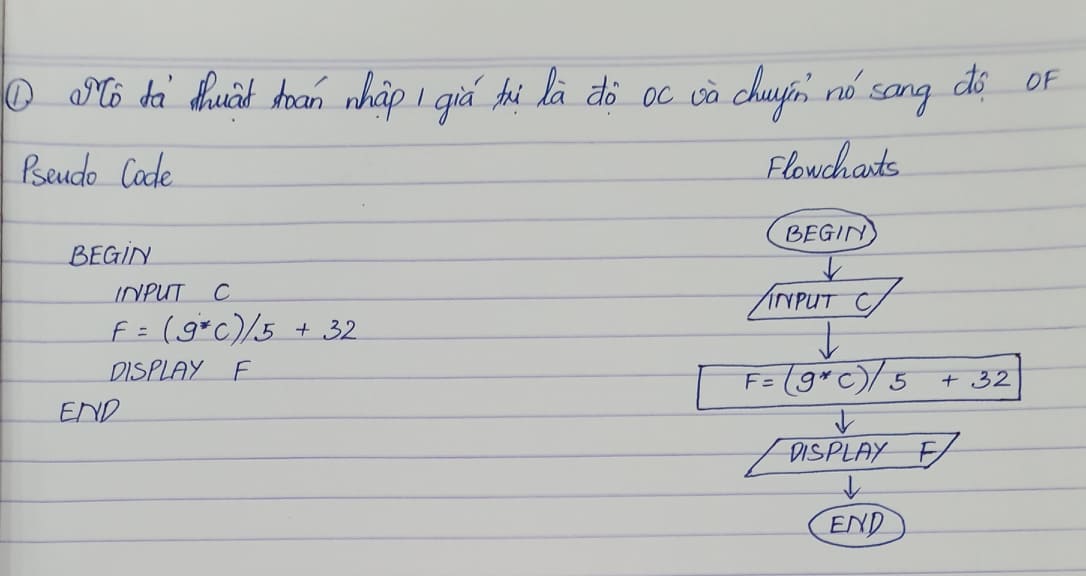 ① Mô tả thuật toán nhập 1 giá trị là độ OC và chuyển nó sang độ OF
Pseudo Code
BEGIN
INPUT C
F = (9*C)/5 + 32
DISPLAY F
END
Flowcharts
BEGIN
INPUT C
F = (9*C)/5 + 32
DISPLAY F
END